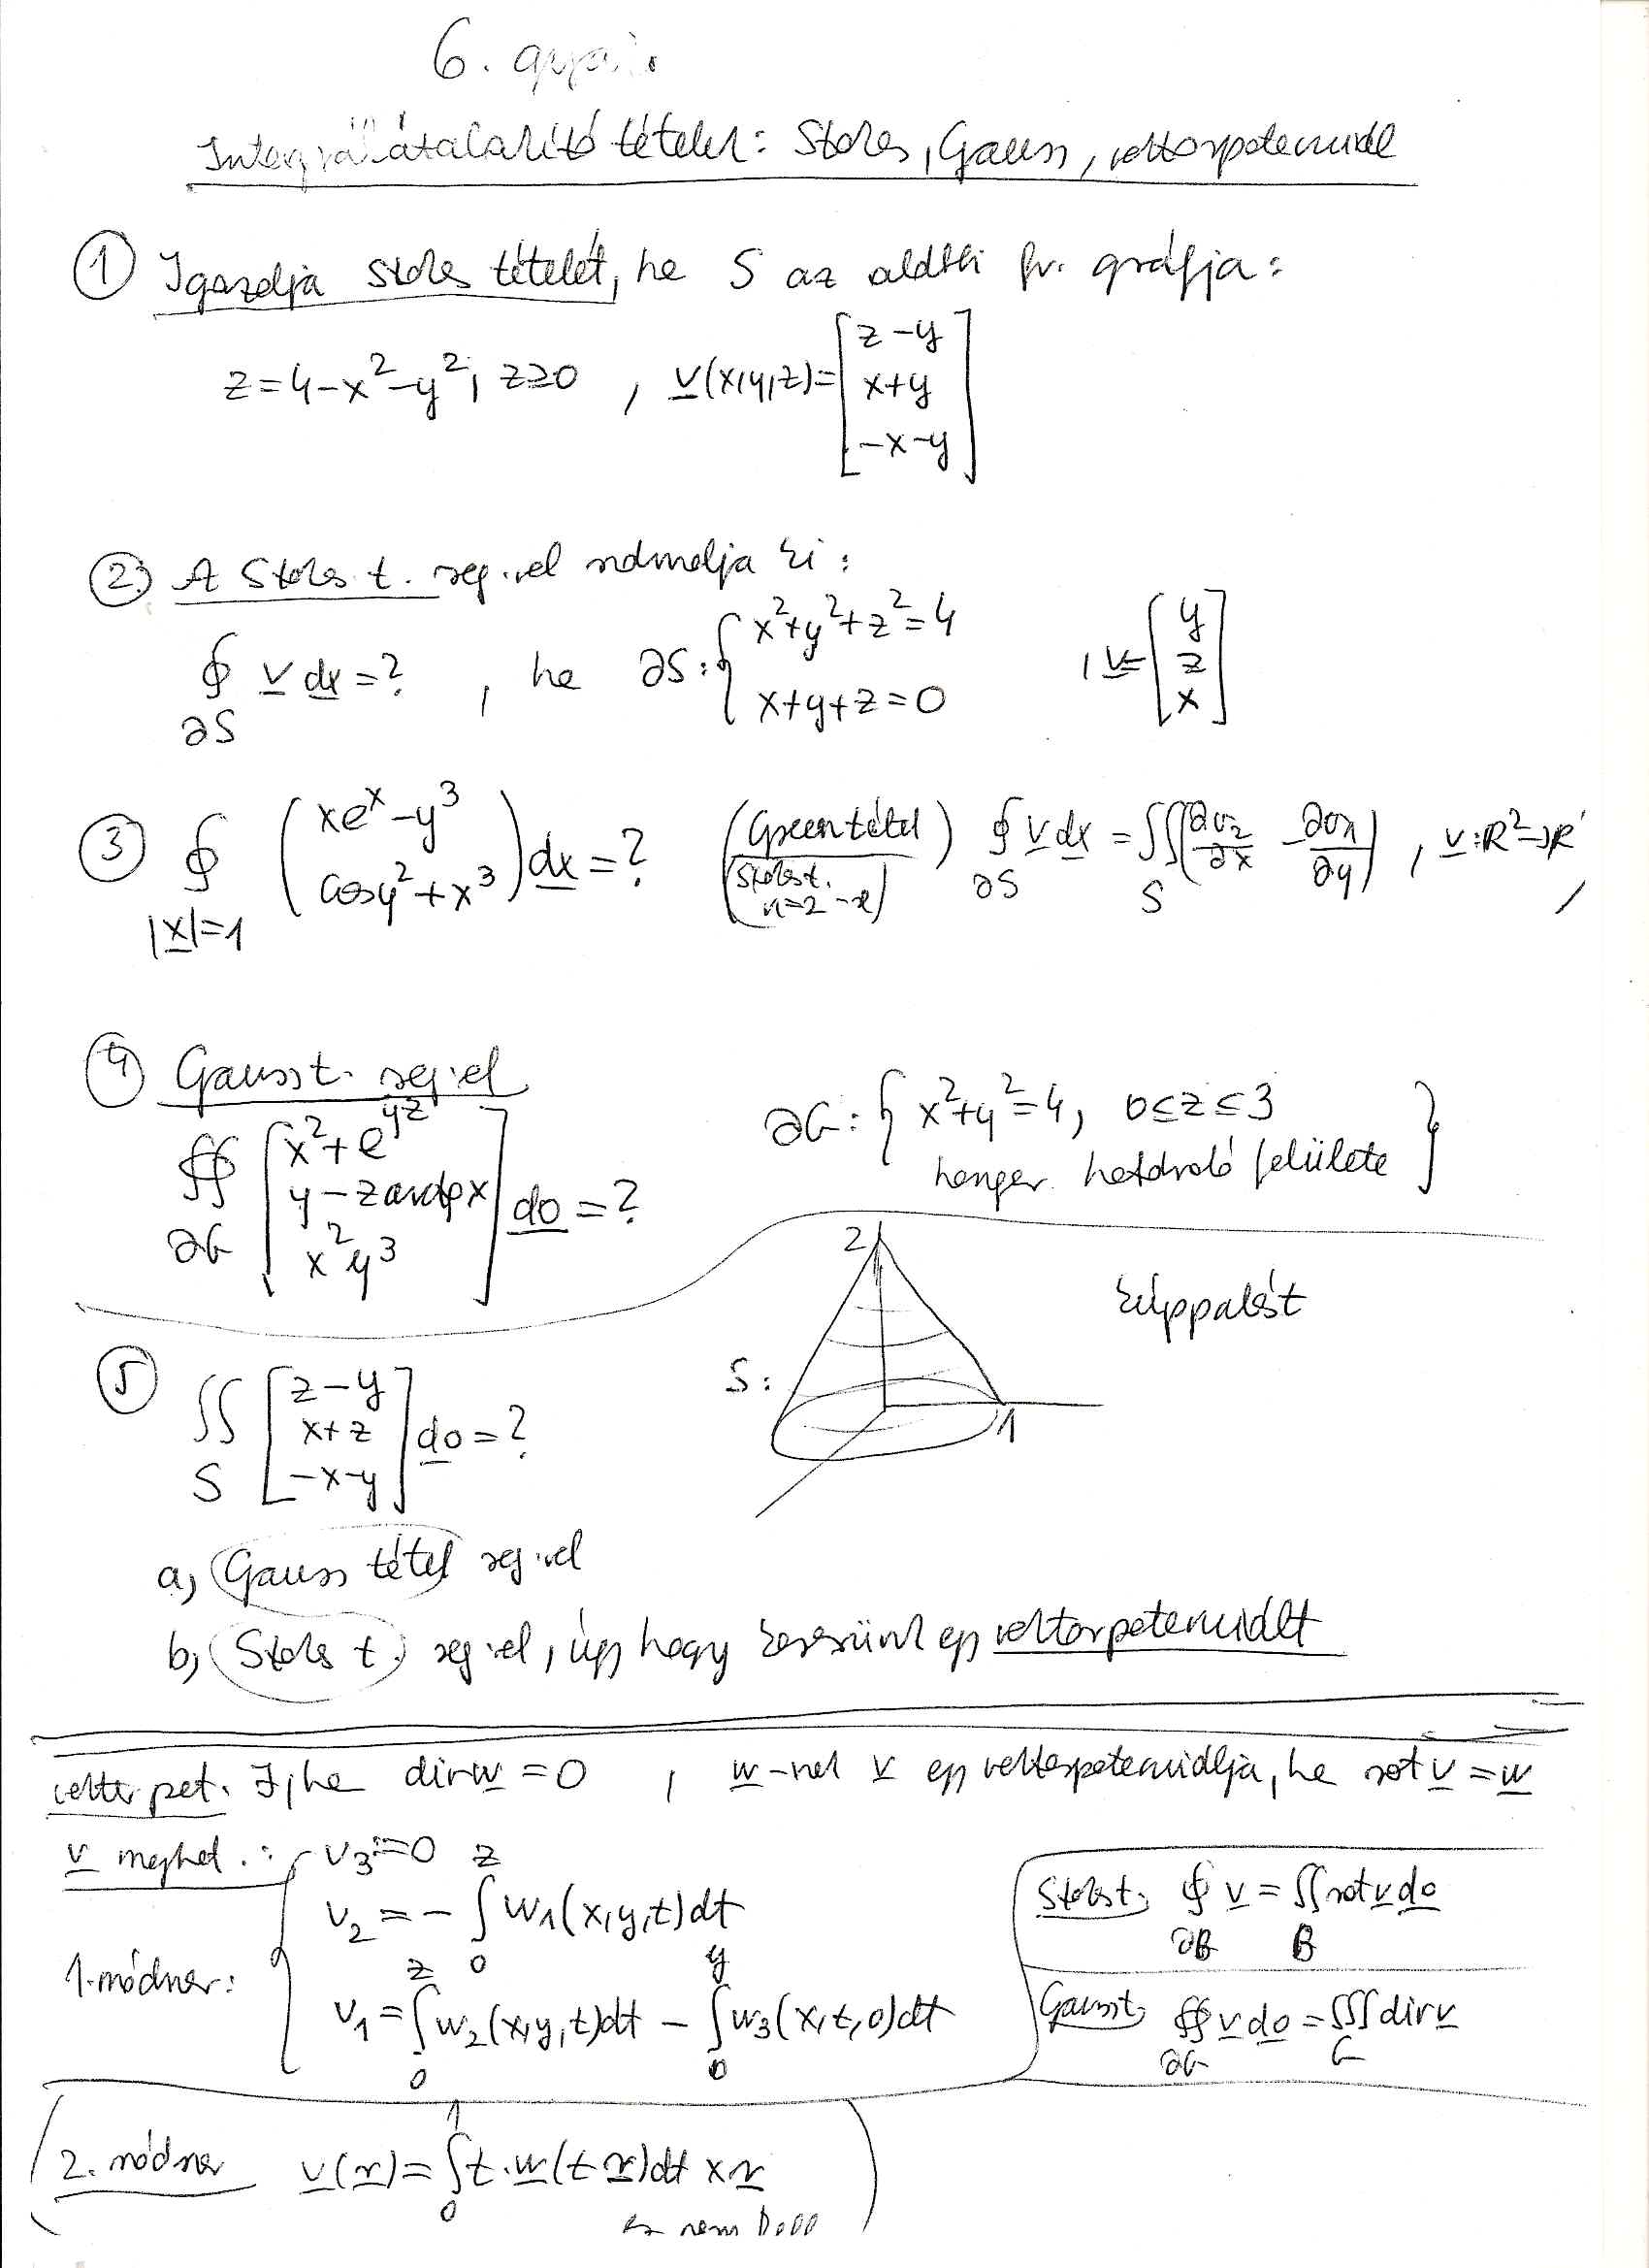 6. gyak.
Integrálátalakító tételek: Stokes, Gauss, vektorpotenciál
① Igazolja Stokes tételét, ha S az alábbi fv. gráfja:
z=4-x²-y², z≥0 , v(x,y,z)= [z-y; x+y; -x-y]
② A Stokes t. seg.vel számolja ki:
∮_∂S v dx =? , ha ∂S: { x²+y²+z²=4; x+y+z=0 , v= [y; z; x]
③ ∮_|x|=1 (xe^x-y³; cosy²+x³) dx =? (Green tétel / Stokes t. n=2-re) ∮_∂S v dx = ∬_S (∂v₂/∂x - ∂v₁/∂y) , v:R²→R²
④ Gauss t. seg.el
∯_∂G [x²+e^yz; y-z arctg x; x²y³] do =? ∂G: { x²+y²=4, 0≤z≤3
henger határoló felülete }
⑤ ∬_S [z-y; x+z; -x-y] do =? S: 2 1 kúppalást
a, Gauss tétel seg.vel
b, Stokes t. seg.vel, úgy hogy keresünk egy vektorpotenciált
vektorpot. ∃, ha div w = 0 , w-nek v egy vektorpotenciálja, ha rot v = w
v meghat.:
1. módszer: { v₃:=0
v₂ = - ∫₀^z w₁(x,y,t)dt
v₁ = ∫₀^z w₂(x,y,t)dt - ∫₀^y w₃(x,t,0)dt
Stokes t. ∮_∂B v = ∬_B rot v do
Gauss t. ∯_∂G v do = ∭_G div v
(2. módszer v(r) = ∫₀^1 t·w(t r)dt × r
ez nem kell)